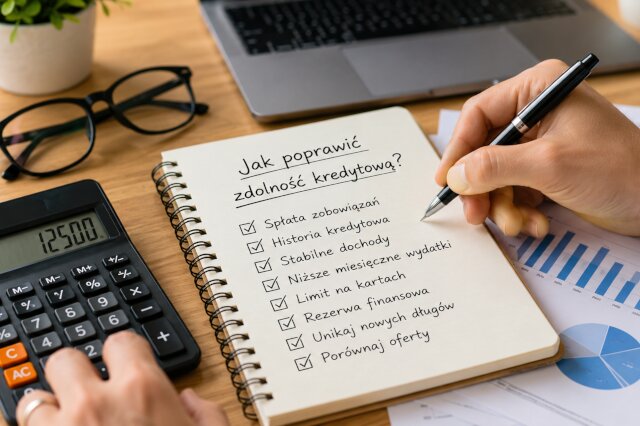 Jak poprawić
zdolność kredytową?
Spłata zobowiązań
Historia kredytowa
Stabilne dochody
Niższe miesięczne wydatki
Limit na kartach
Rezerwa finansowa
Unikaj nowych długów
Porównaj oferty
12500.